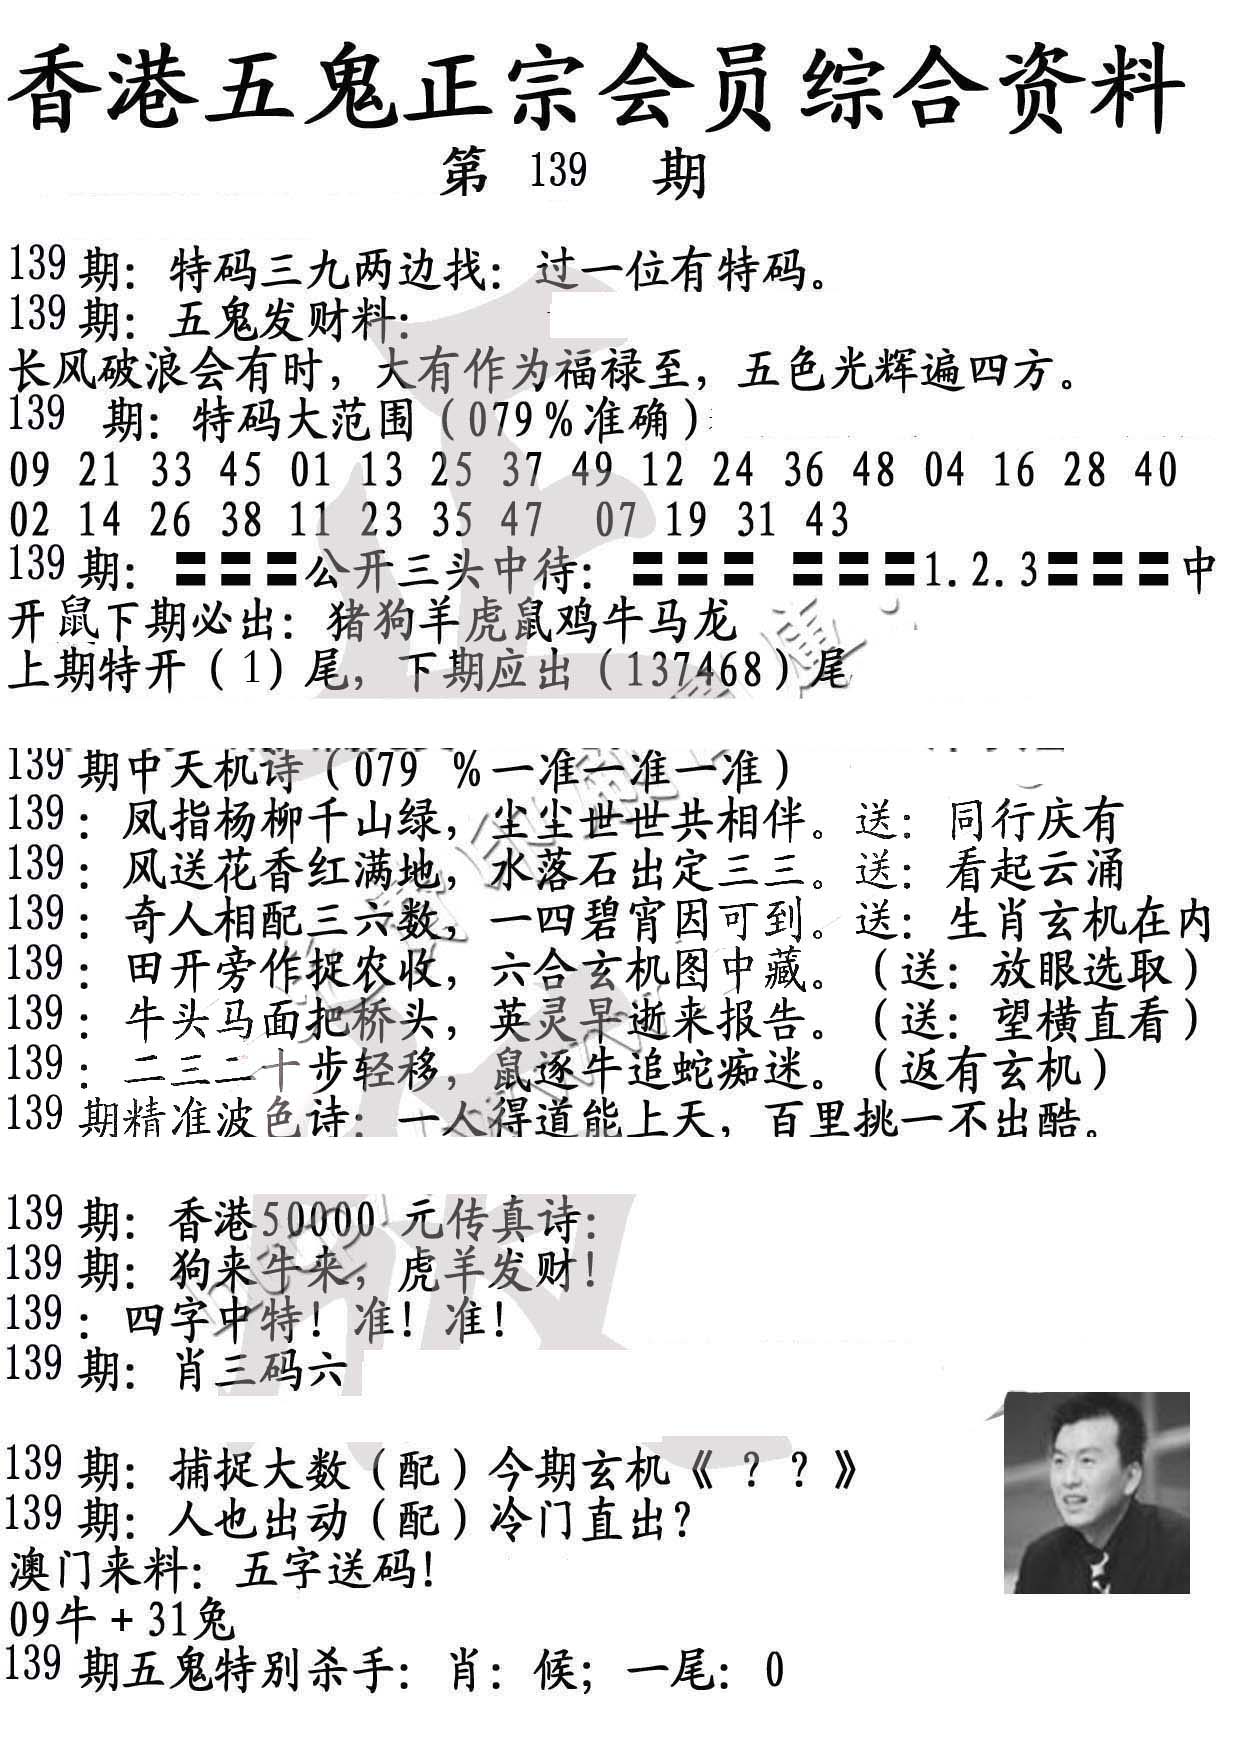 香港五鬼正宗会员综合资料
第 139 期
139 期：特码三九两边找：过一位有特码。
139 期：五鬼发财料：
长风破浪会有时，大有作为福禄至，五色光辉遍四方。
139 期：特码大范围（079%准确）
09 21 33 45 01 13 25 37 49 12 24 36 48 04 16 28 40
02 14 26 38 11 23 35 47 07 19 31 43
139 期：〓〓〓公开三头中待：〓〓〓 〓〓〓1.2.3〓〓〓中
开鼠下期必出：猪狗羊虎鼠鸡牛马龙
上期特开（1）尾，下期应出（137468）尾
139 期中天机诗（079 %一准一准一准）
139：凤指杨柳千山绿，尘尘世世共相伴。送：同行庆有
139：风送花香红满地，水落石出定三三。送：看起云涌
139：奇人相配三六数，一四碧宵因可到。送：生肖玄机在内
139：田开旁作捉农收，六合玄机图中藏。（送：放眼选取）
139：牛头马面把桥头，英灵早逝来报告。（送：望横直看）
139：二三二十步轻移，鼠逐牛追蛇痴迷。（返有玄机）
139 期精准波色诗：一人得道能上天，百里挑一不出酷。
139 期：香港50000 元传真诗：
139 期：狗来牛来，虎羊发财！
139：四字中特！准！准！
139 期：肖三码六
139 期：捕捉大数（配）今期玄机《？？》
139 期：人也出动（配）冷门直出？
澳门来料：五字送码！
09牛+31兔
139 期五鬼特别杀手：肖：候；一尾：0